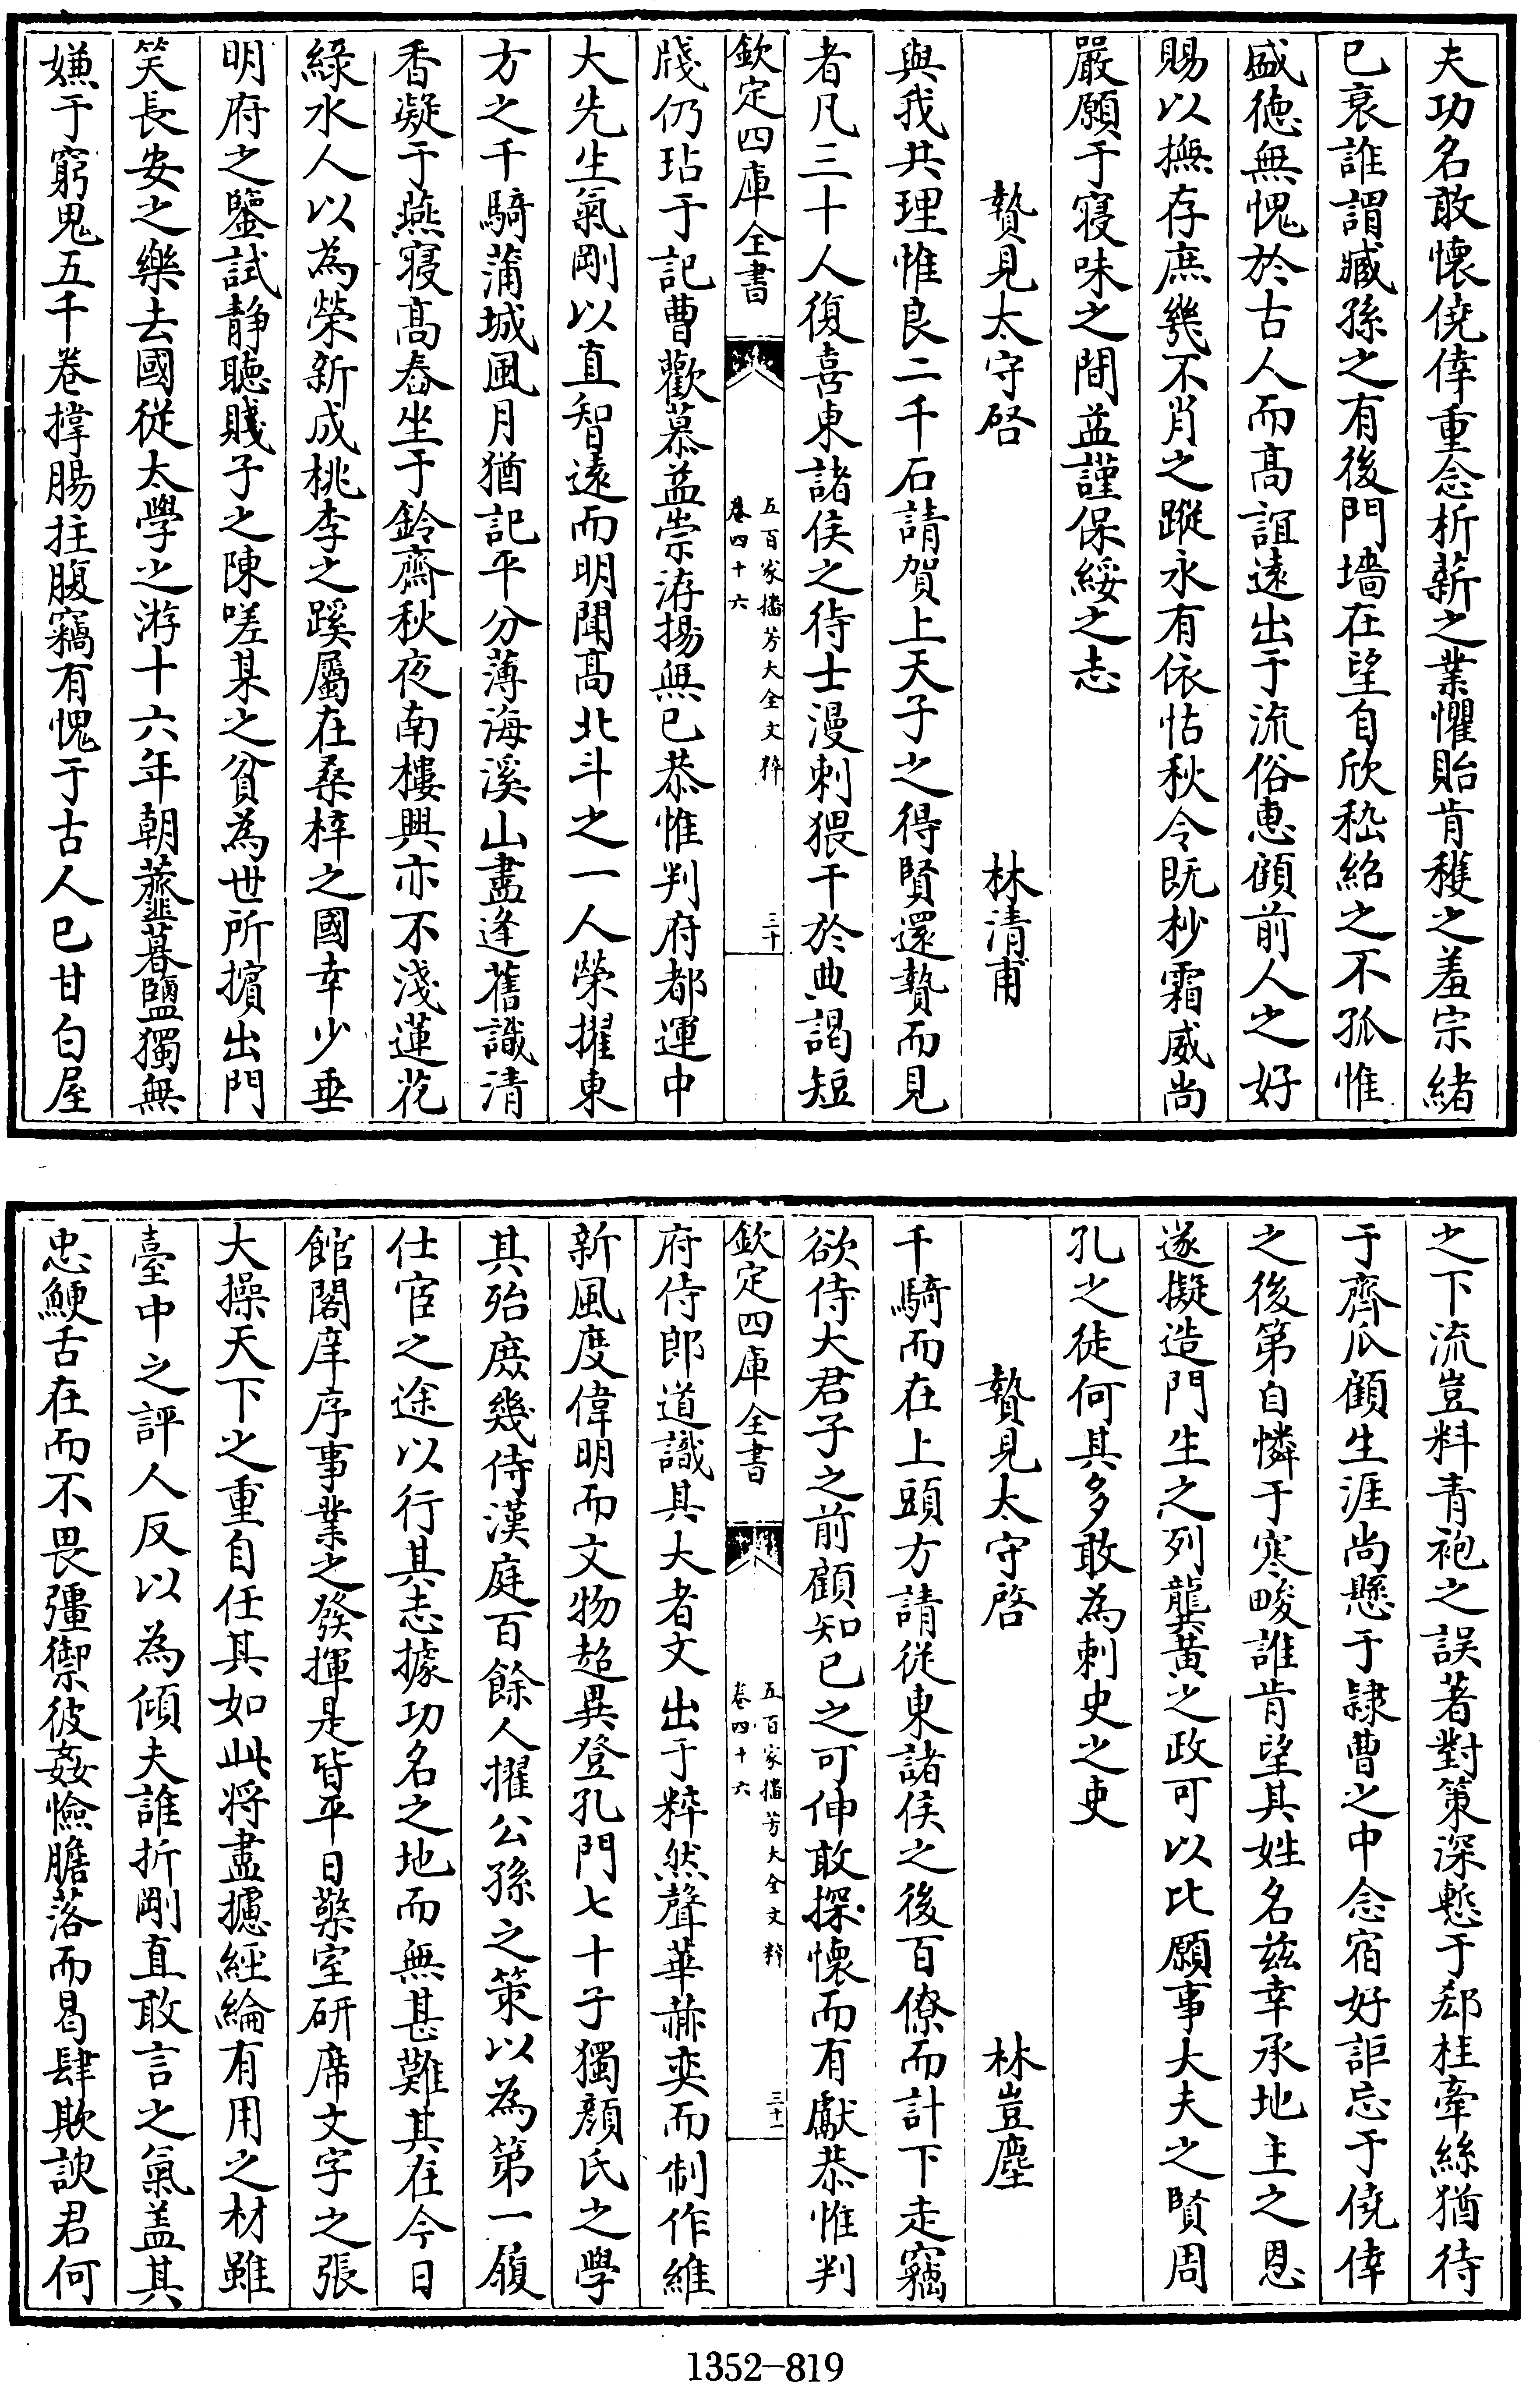 夫功名敢懷僥倖重念析薪之業懼貽肯穫之羞宗緒
已衰誰謂臧孫之有後門墻在望自欣嵇紹之不孤惟
盛徳無愧於古人而髙誼逺出于流俗惠顧前人之好
賜以撫存庶幾不肖之蹤永有依怙秋令既杪霜威尚
嚴願于寝味之間益謹保綏之志
贄見太守啓
林清甫
與我共理惟良二千石請賀上天子之得賢還贄而見
者凡三十人復喜東諸侯之待士漫刺猥干於典謁短
欽定四庫全書
五百家播芳大全文粹
卷四十六
三十
牋仍玷于記曹歡慕益崇洊揚無已恭惟判府都運中
大先生氣剛以直智逺而明聞髙北斗之一人榮擢東
方之千騎蒲城風月猶記平分薄海溪山盡逢舊識清
香凝于燕寝髙舂坐于鈴齋秋夜南樓興亦不淺蓮花
緑水人以為榮新成桃李之蹊屬在桑梓之國幸少垂
明府之鑒試靜聽賤子之陳嗟某之貧為世所擯出門
笑長安之樂去國從太學之游十六年朝虀暮鹽獨無
嫌于窮鬼五千卷撑腸拄腹竊有愧于古人已甘白屋
之下流豈料青袍之誤著對策深慙于郄桂牽絲猶待
于齊瓜顧生涯尚懸于隷曹之中念宿好詎忘于僥倖
之後第自憐于寒畯誰肯望其姓名兹幸承地主之恩
遂擬造門生之列龔黄之政可以比願事大夫之賢周
孔之徒何其多敢為刺史之吏
贄見太守啓
林豈塵
千騎而在上頭方請從東諸侯之後百僚而計下走竊
欲侍大君子之前顧知己之可伸敢探懐而有獻恭惟判
欽定四庫全書
五百家播芳大全文粹
卷四十六
三十一
府侍郎道識其大者文出于粹然聲華赫奕而制作維
新風度偉明而文物超異登孔門七十子獨顔氏之學
其殆庶幾侍漢庭百餘人擢公孫之策以為第一履
仕宦之途以行其志據功名之地而無甚難其在今日
館閣庠序事業之發揮是皆平日檠室研席文字之張
大操天下之重自任其如此將盡攄經綸有用之材雖
臺中之評人反以為傾夫誰折剛直敢言之氣蓋其
忠鯁舌在而不畏彊禦彼姦憸膽落而曷肆欺詖君何
1352-819